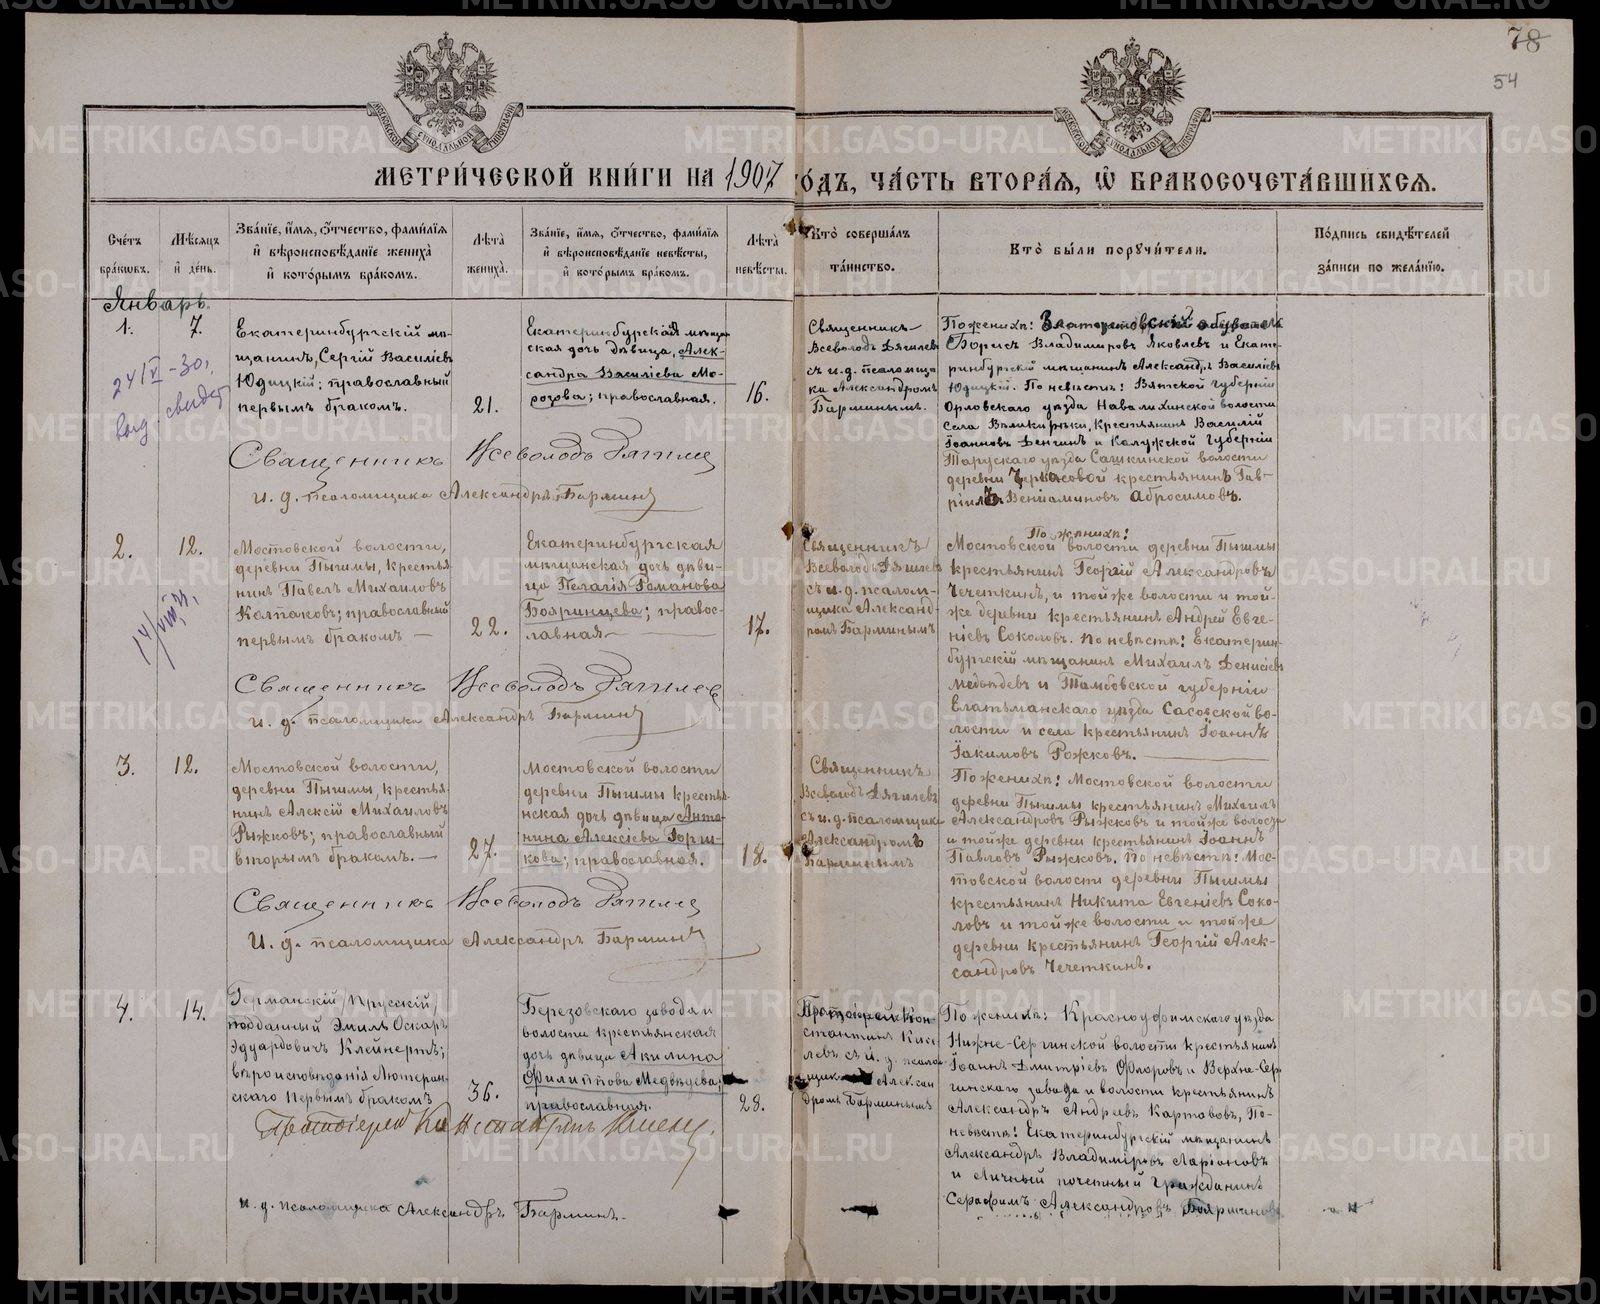 78
54
МЕТРИ́ЧЕСКОЙ КНИ́ГИ НА 1907 ГО́ДЪ, ЧА́СТЬ ВТОРА́Я, Ѿ БРАКОСОЧЕТА́ВШИХСЯ.
Сче́тъ бра́ковъ.
Мѣ́сяцъ и҆ де́нь.
Зва́нїе, и҆́мя, ѻ҆́тчество, фами́лїя и҆ вѣроисповѣ́данїе жениха̀ и҆ кото́рымъ бра́комъ.
Лѣ́та жениха̀.
Зва́нїе, и҆́мя, ѻ҆́тчество, фами́лїя и҆ вѣроисповѣ́данїе невѣ́сты, и҆ кото́рымъ бра́комъ.
Лѣ́та невѣ́сты.
Кто̀ соверша́лъ та́инство.
Кто̀ бы́ли поручи́тели.
По́дпись свидѣ́телей за́писи по жела́нїю.
Январь.
1.
7.
24/V -30г.
выд. свидет
Екатеринбургскій мѣ-
щанинъ, Сергій Василіевъ
Юдицкій; православный
первымъ бракомъ.
21.
Екатеринбургская мѣщан
ская дочь дѣвица, Алек-
сандра Василіева Мо-
розова; православная.
16.
Священникъ
Всеволодъ Дягилевъ
съ и. д. псаломщи-
ка Александромъ
Барминымъ.
По женихѣ:
Борисъ Владимировъ Яковлевъ и Екате-
ринбургскій мѣщанинъ Александръ Василіевъ
Юдицкій. По невѣстѣ: Вятской губерніи
Орловскаго уѣзда Навалихинской волости
села Великорѣки, крестьянинъ Василій
Іоанновъ Денгинъ и Калужской губерніи
Тарускаго уѣзда Сашкинской волости
деревни крестьянинъ Гав-
ріилъ Веніаминовъ Абросимовъ.
Священникъ Всеволодъ Дягилевъ
и. д. псаломщика Александръ Барминъ
2.
12.
Мостовской волости,
деревни Пышмы, крестья
нинъ Павелъ Михаиловъ
Колпаковъ; православный
первымъ бракомъ —
22.
Екатеринбургская
мѣщанская дочь дѣви-
ца Пелагія Романова
Бояринцева; право-
славная —
17.
Священникъ
Всеволодъ Дягилевъ
съ и. д. псалом-
щика Александ-
ромъ Барминымъ
По женихѣ:
Мостовской волости деревни Пышмы
крестьянинъ Георгій Александровъ
Чечеткинъ, и той же волости и той-
же деревни крестьянинъ Андрей Евге-
ніевъ Соколовъ. По невѣстѣ: Екатерин-
бургскій мѣщанинъ Михаилъ Денисіевъ
Медвѣдевъ и Тамбовской губерніи
Елатьманскаго уѣзда Сасовской во-
лости и села крестьянинъ Іоаннъ
Іакимовъ Рожковъ.
Священникъ Всеволодъ Дягилевъ
и. д. псаломщика Александръ Барминъ
3.
12.
Мостовской волости,
деревни Пышмы, крестья-
нинъ Алексій Михаиловъ
Рыжковъ; православный
вторымъ бракомъ. —
27.
Мостовской волости
деревни Пышмы крестья-
нская дочь дѣвица Анто-
нина Алексіева Горш-
кова; православная.
18.
Священникъ
Всеволодъ Дягилевъ
съ и. д. псаломщика
Александромъ
Барминымъ
По женихѣ: Мостовской волости
деревни Пышмы крестьянинъ Михаилъ
Александровъ Рыжковъ и той же волости
и той же деревни крестьянинъ Іоаннъ
Павловъ Рыжковъ. По невѣстѣ: Мос-
товской волости деревни Пышмы
крестьянинъ Никита Евгеніевъ Соко-
ловъ и той же волости и той же
деревни крестьянинъ Георгій Алек-
сандровъ Чечеткинъ.
Священникъ Всеволодъ Дягилевъ
И. д. псаломщика Александръ Барминъ
4.
14.
Германскій /Прусскій/
подданный Эмиль Оскаръ
Эдуардовичъ Клейнертъ;
вѣроисповѣданія Лютеран-
скаго первымъ бракомъ
36.
Березовскаго завода и
волости крестьянская
дочь дѣвица Акилина
Филиппова Медвѣдева;
православная.
28.
Протоіерей Кон-
стантинъ
съ и. д. псалом-
щика Алексан
дромъ Барминымъ
По женихѣ: Красноуфимскаго уѣзда
Нижне-Сергинской волости крестьянинъ
Іоаннъ Дмитріевъ Флоровъ и Верхне-Сер-
гинскаго завода и волости крестьянинъ
Александръ Андреевъ Картововъ, По-
невѣстѣ: Екатеринбургскій мѣщанинъ
Александръ Владиміровъ Ларіоновъ
и Личный почетный гражданинъ
Серафимъ Александровъ
Протоіерей Константинъ
и. д. псаломщика Александръ Барминъ.
METRIKI.GASO-URAL.RU